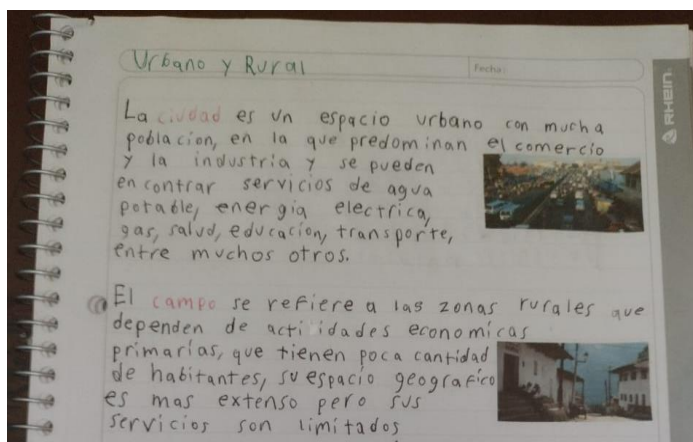 Urbano y Rural
Fecha:
RHEIN.
La ciudad es un espacio urbano con mucha
poblacion, en la que predominan el comercio
y la industria y se pueden
encontrar servicios de agua
potable, energia electrica,
gas, salud, educacion, transporte,
entre muchos otros.
El campo se refiere a las zonas rurales que
dependen de acti idades economicas
primarias, que tienen poca cantidad
de habitantes, su espacio geografico
es mas extenso pero sus
servicios son limitados